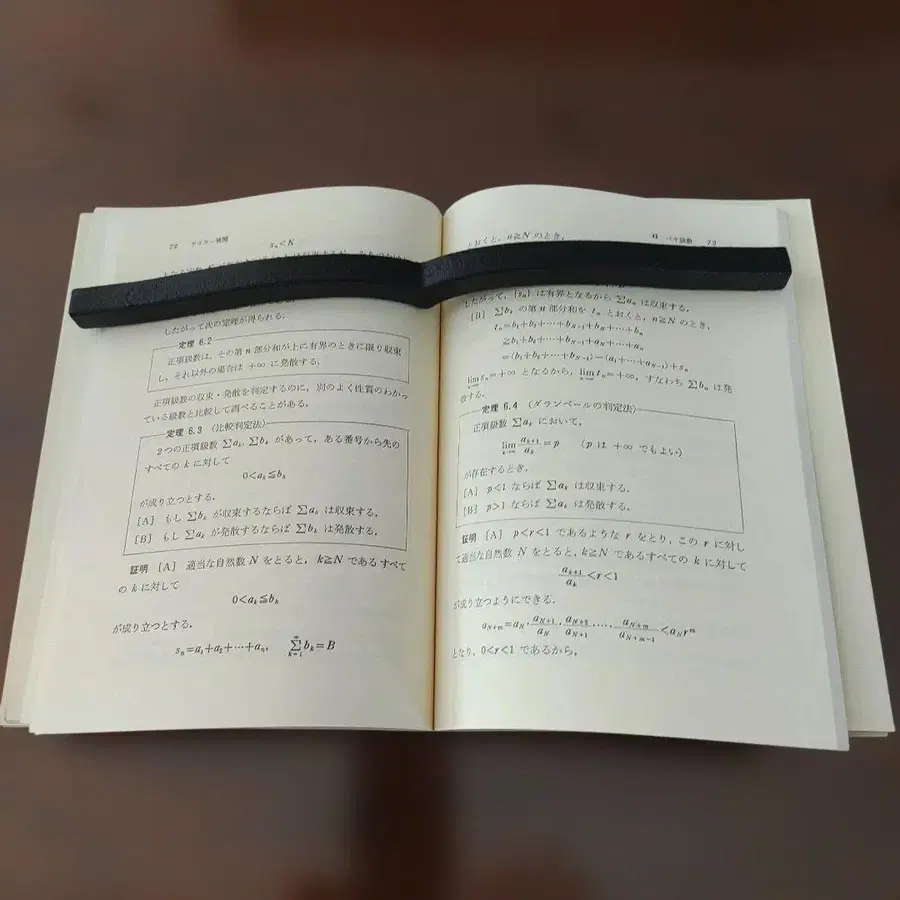 72 テイラー展開
sₙ<K
したがって次の定理が得られる．
定理 6.2
正項級数は，その第 n 部分和が上に有界のときに限り収束
し，それ以外の場合は +∞ に発散する．
正項級数の収束・発散を判定するのに，別のよく性質のわかっ
ている級数と比較して調べることがある．
定理 6.3 (比較判定法)
2つの正項級数 ∑aₖ, ∑bₖ があって，ある番号から先の
すべての k に対して
0<aₖ≦bₖ
が成り立つとする．
[A] もし ∑bₖ が収束するならば ∑aₖ は収束する．
[B] もし ∑aₖ が発散するならば ∑bₖ は発散する．
証明 [A] 適当な自然数 N をとると，k≧N であるすべて
の k に対して
0<aₖ≦bₖ
が成り立つとする．
sₙ=a₁+a₂+⋯+aₙ, ∑_{k=1}^{∞} bₖ=B
6 ベキ級数 73
とおくと，n≧N のとき，
したがって，{sₙ} は有界となるから ∑aₙ は収束する．
[B] ∑bₖ の第 n 部分和を tₙ とおくと，n≧N のとき，
tₙ=b₁+b₂+⋯+b_{N-1}+b_N+⋯+bₙ
≧b₁+b₂+⋯+b_{N-1}+a_N+⋯+aₙ
=(b₁+b₂+⋯+b_{N-1})−(a₁+⋯+a_{N-1})+sₙ
lim_{n→∞} sₙ=+∞ となるから，lim_{n→∞} tₙ=+∞，すなわち ∑bₙ は発
散する．
定理 6.4 (ダランベールの判定法)
正項級数 ∑aₖ において，
lim_{k→∞} a_{k+1}/aₖ=p (p は +∞ でもよい)
が存在するとき，
[A] p<1 ならば ∑aₖ は収束する．
[B] p>1 ならば ∑aₖ は発散する．
証明 [A] p<r<1 であるような r をとり，この r に対し
て適当な自然数 N をとると，k≧N であるすべての k に対して
a_{k+1}/aₖ<r<1
が成り立つようにできる．
a_{N+m}=a_N·a_{N+1}/a_N·a_{N+2}/a_{N+1}·⋯·a_{N+m}/a_{N+m-1}<a_N rᵐ
となり，0<r<1 であるから，